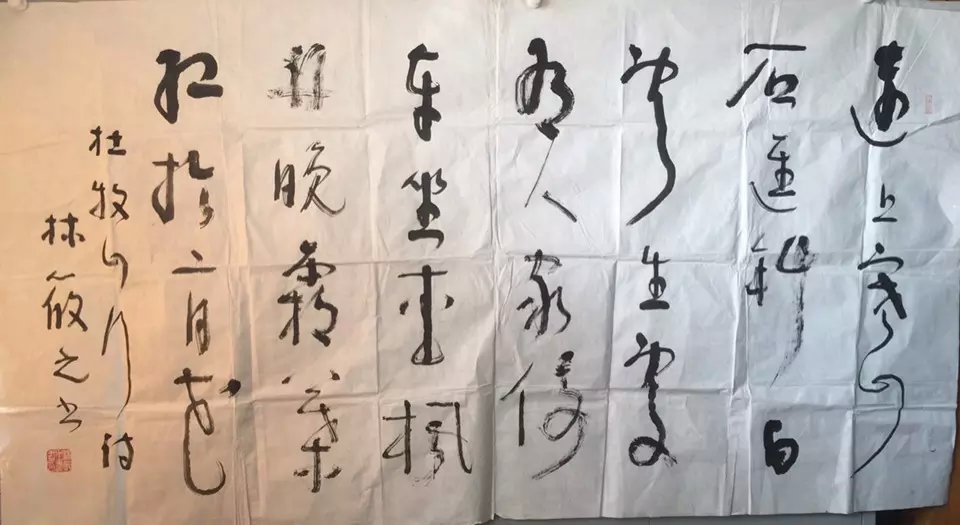 遠上寒山
石逕斜白
雲生處
有人家停
車坐愛枫
林晚霜葉
紅於二月花
杜牧山行诗
林筱之书